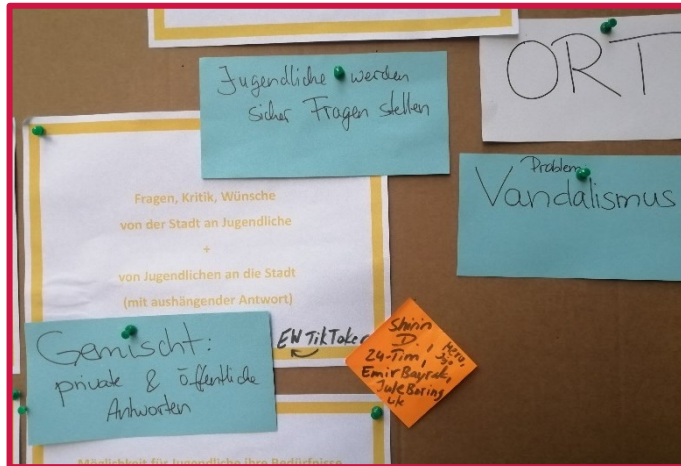 Jugendliche werden
sicher Fragen stellen
ORT
Problem
Vandalismus
Fragen, Kritik, Wünsche
von der Stadt an Jugendliche
+
von Jugendlichen an die Stadt
(mit aushängender Antwort)
EW TikToker
Gemischt:
private & öffentliche
Antworten
Shirin
D.,
24-Tim,
Emir Bayrak,
Jule Boring
Möglichkeit für Jugendliche ihre Bedürfnisse